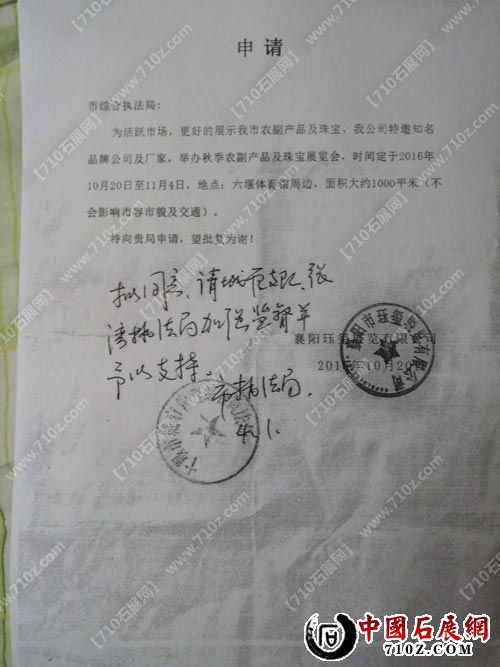 申请
市综合执法局:
为活跃市场,更好的展示我市农副产品及珠宝,我公司特邀知名
品牌公司及厂家,举办秋季农副产品及珠宝展览会,时间定于2016年
10月20日至11月4日,地点:六堰体育馆周边,面积大约1000平米(不
会影响市容市貌及交通)。
特向贵局申请,望批复为谢!
拟同意,请城区支队、张
湾执法局加强监督并
予以支持。
市执法局.
襄阳珏玺展览有限公司
201 年10月20日
【710石展网】
www.710z.com
中國石展網
710Z.COM